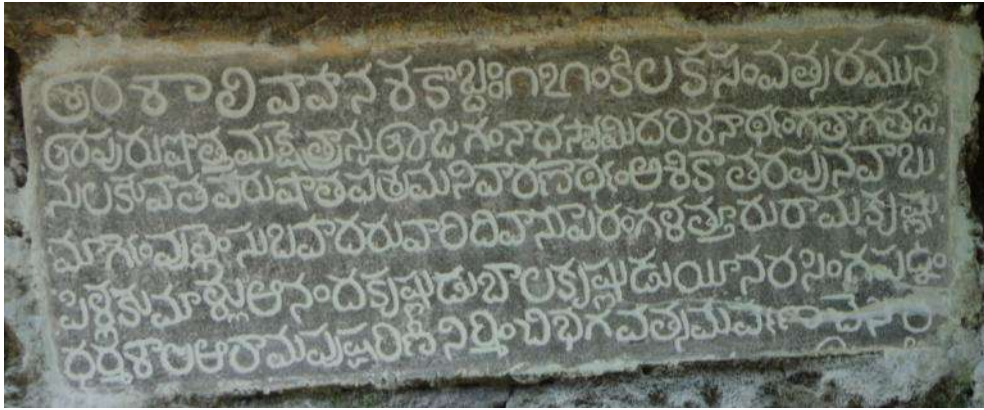 శ్రీ శాలివాహన శకాబ్దః౧౭౧ంకీలక సంవత్సరమున
శ్రీపురుషోత్తమక్షేత్రాస్త శ్రీజగంనాధస్వామి దరిశనార్థంగత్రాగతజ
నులకువాత వరుషాతపశ్రమనివారణార్థం ఆశికాతరపునవాబు
మూర్గంవుల్లెసుబవాదరువారి దివాను పురంగళత్తూరురామకృష్ణ
పిళ్లకుమాళ్లు ఆనందకృష్ణుడు బాలకృష్ణుడు యీనరసింగ
ధర్మశాల ఆరామపుష్కరిణి నిర్మించి భగవత్సమర్పణ